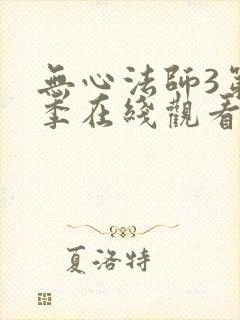 無心法師3第
季在綫觀看
夏洛特